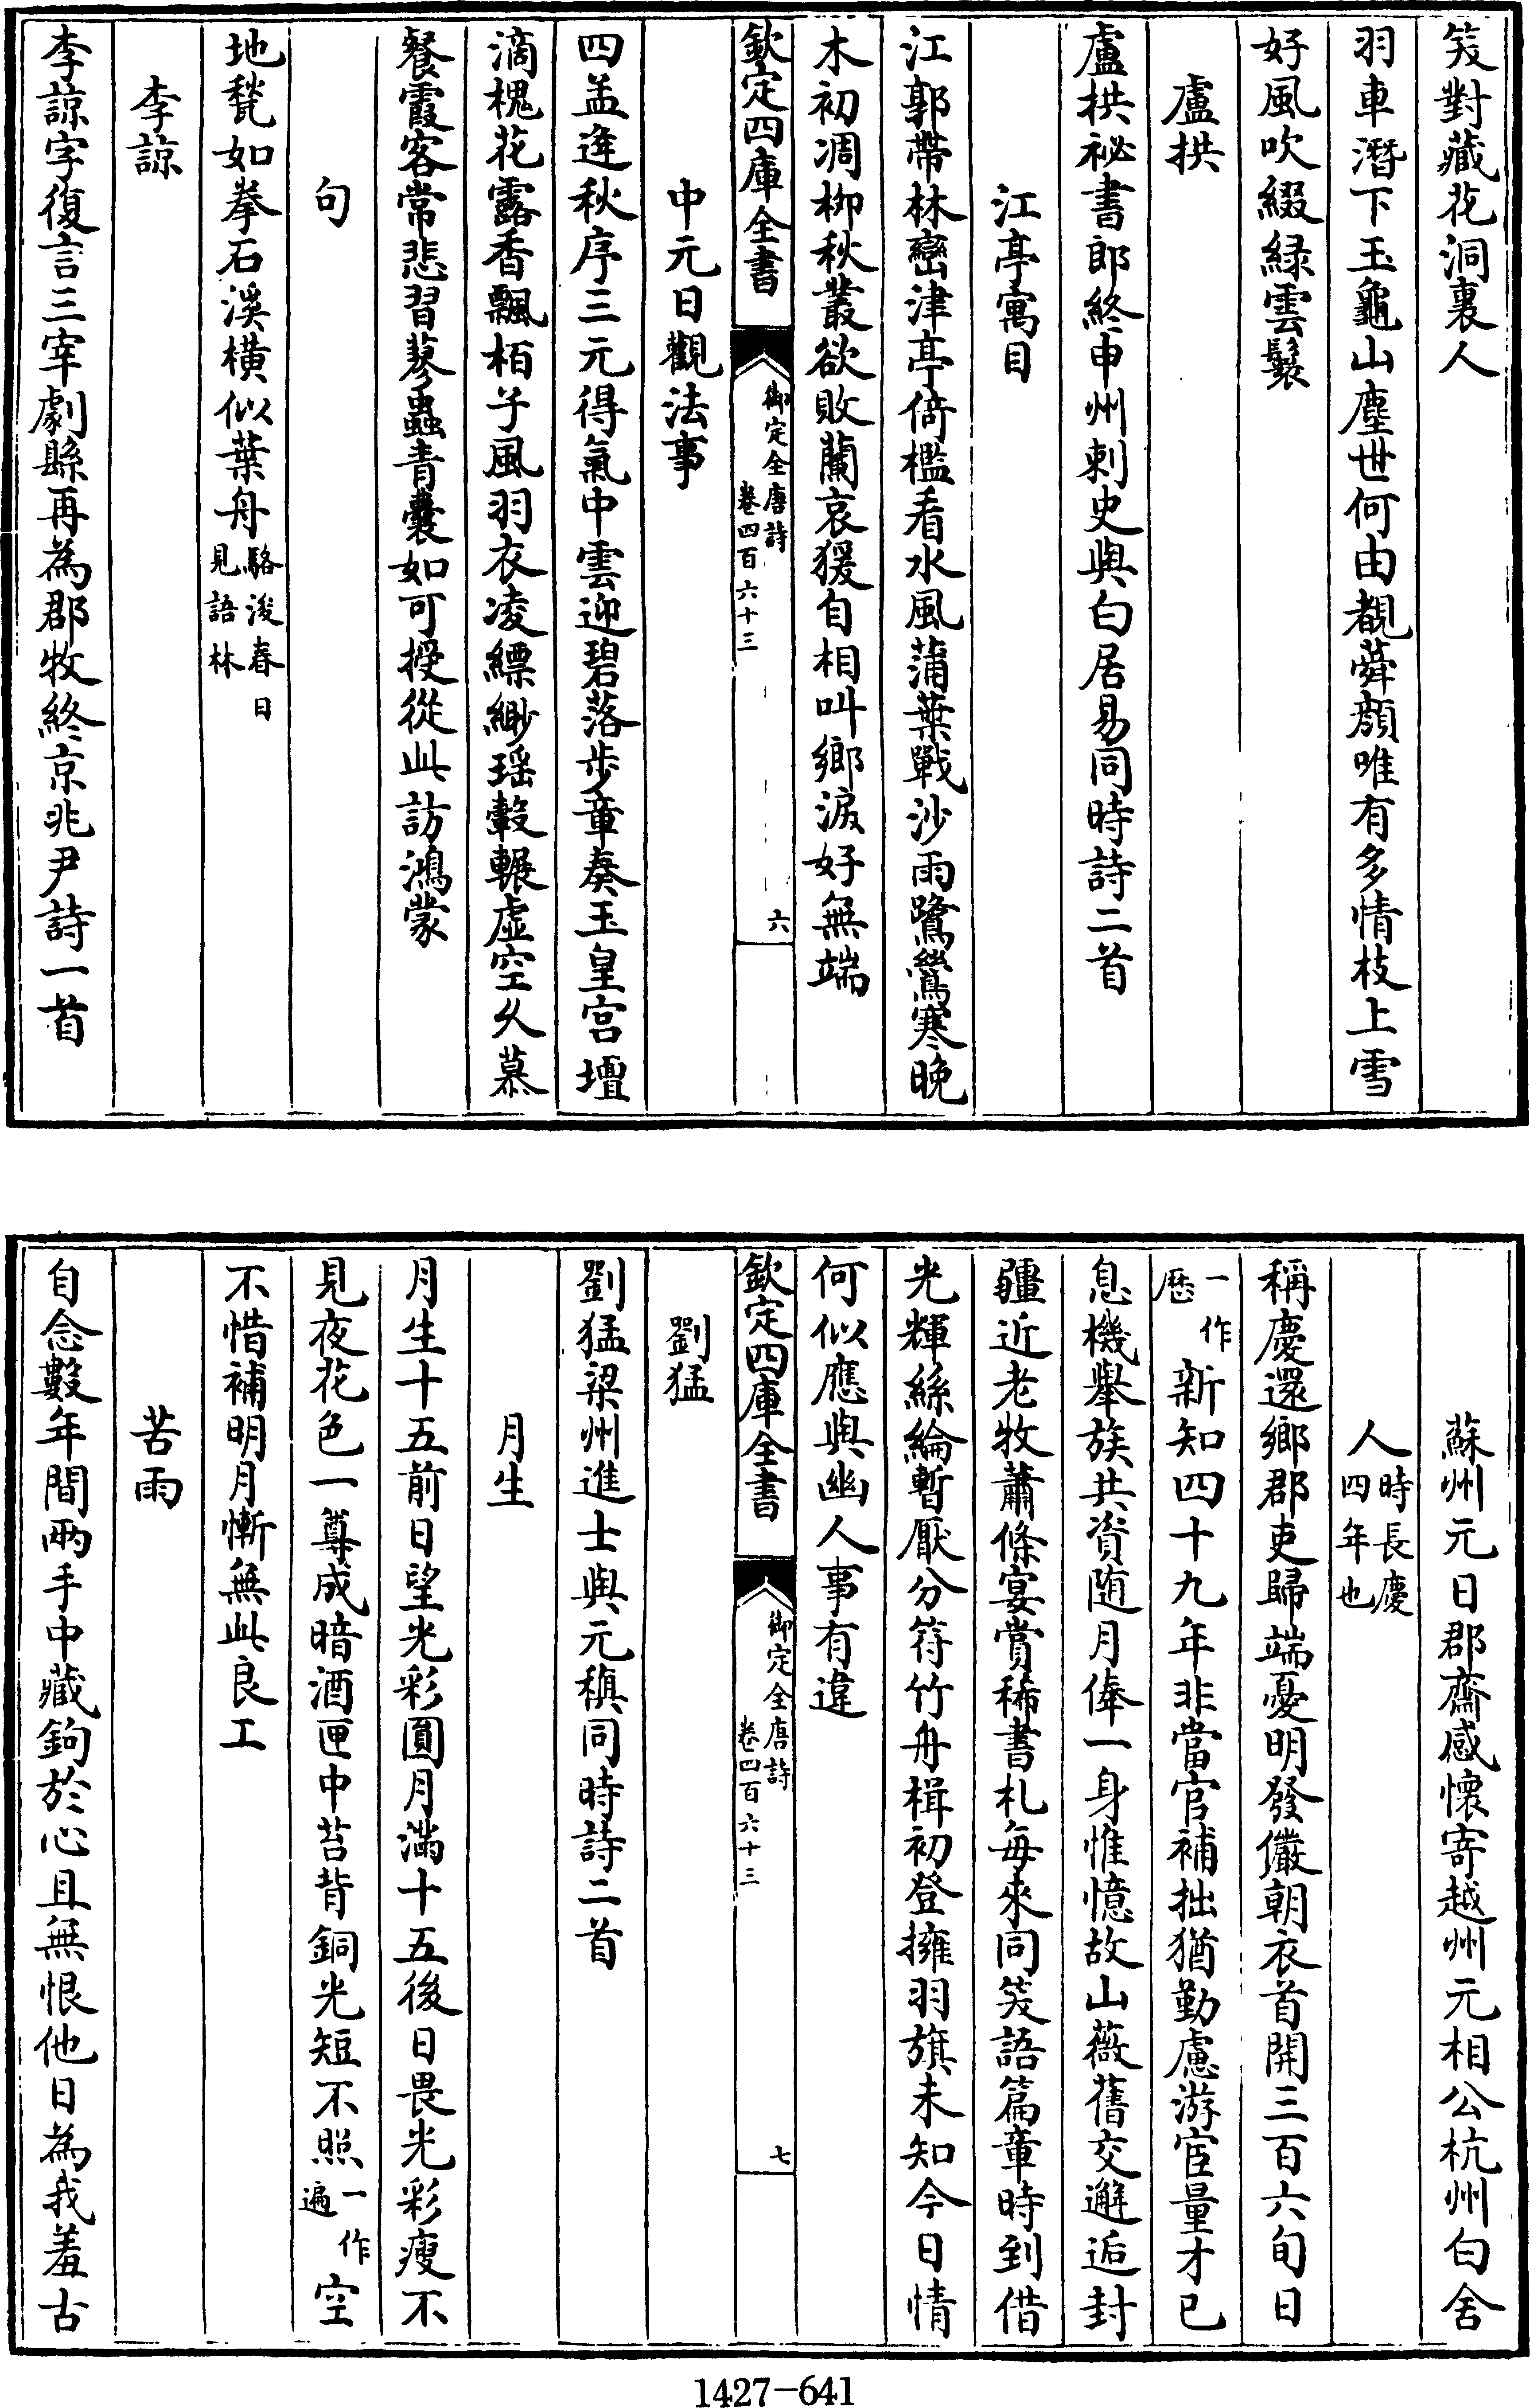 笑對藏花洞裏人
羽車潛下玉龜山塵世何由覩蕣顔唯有多情枝上雪
好風吹綴緑雲鬟
盧拱
盧拱祕書郎終申州刺史與白居易同時詩二首
江亭寓目
江郭帶林巒津亭倚檻看水風蒲葉戰沙雨鷺鷥寒晚
木初凋柳秋叢欲敗蘭哀猨自相叫鄉淚好無端
欽定四庫全書
御定全唐詩
卷四百六十三
六
中元日觀法事
四孟逢秋序三元得氣中雲迎碧落步章奏玉皇宫壇
滴槐花露香飄栢子風羽衣凌縹緲瑶轂輾虛空久慕
餐霞客常悲習蓼蟲青囊如可授從此訪鴻蒙
句
地甃如拳石溪橫似葉舟駱浚春日
見語林
李諒
李諒字復言三宰劇縣再為郡牧終京兆尹詩一首
蘇州元日郡齋感懷寄越州元相公杭州白舍
人時長慶
四年也
稱慶還鄉郡吏歸端憂明發儼朝衣首開三百六旬日
一作
歴新知四十九年非當官補拙猶勤慮游宦量才已
息機舉族共資随月俸一身惟憶故山薇舊交邂逅封
疆近老牧蕭條宴賞稀書札每來同笑語篇章時到借
光輝絲綸暫厭分符竹舟楫初登擁羽旗未知今日情
何似應與幽人事有違
欽定四庫全書
御定全唐詩
卷四百六十三
七
劉猛
劉猛梁州進士與元稹同時詩二首
月生
月生十五前日望光彩圓月滿十五後日畏光彩瘦不
見夜花色一尊成暗酒匣中苔背銅光短不照一作
遍空
不惜補明月慚無此良工
苦雨
自念數年間兩手中藏鉤於心且無恨他日為我羞古
1427-641